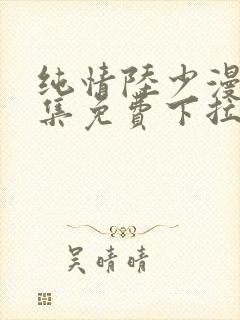 纯情陆少漫
集免费下拉
吴晴晴